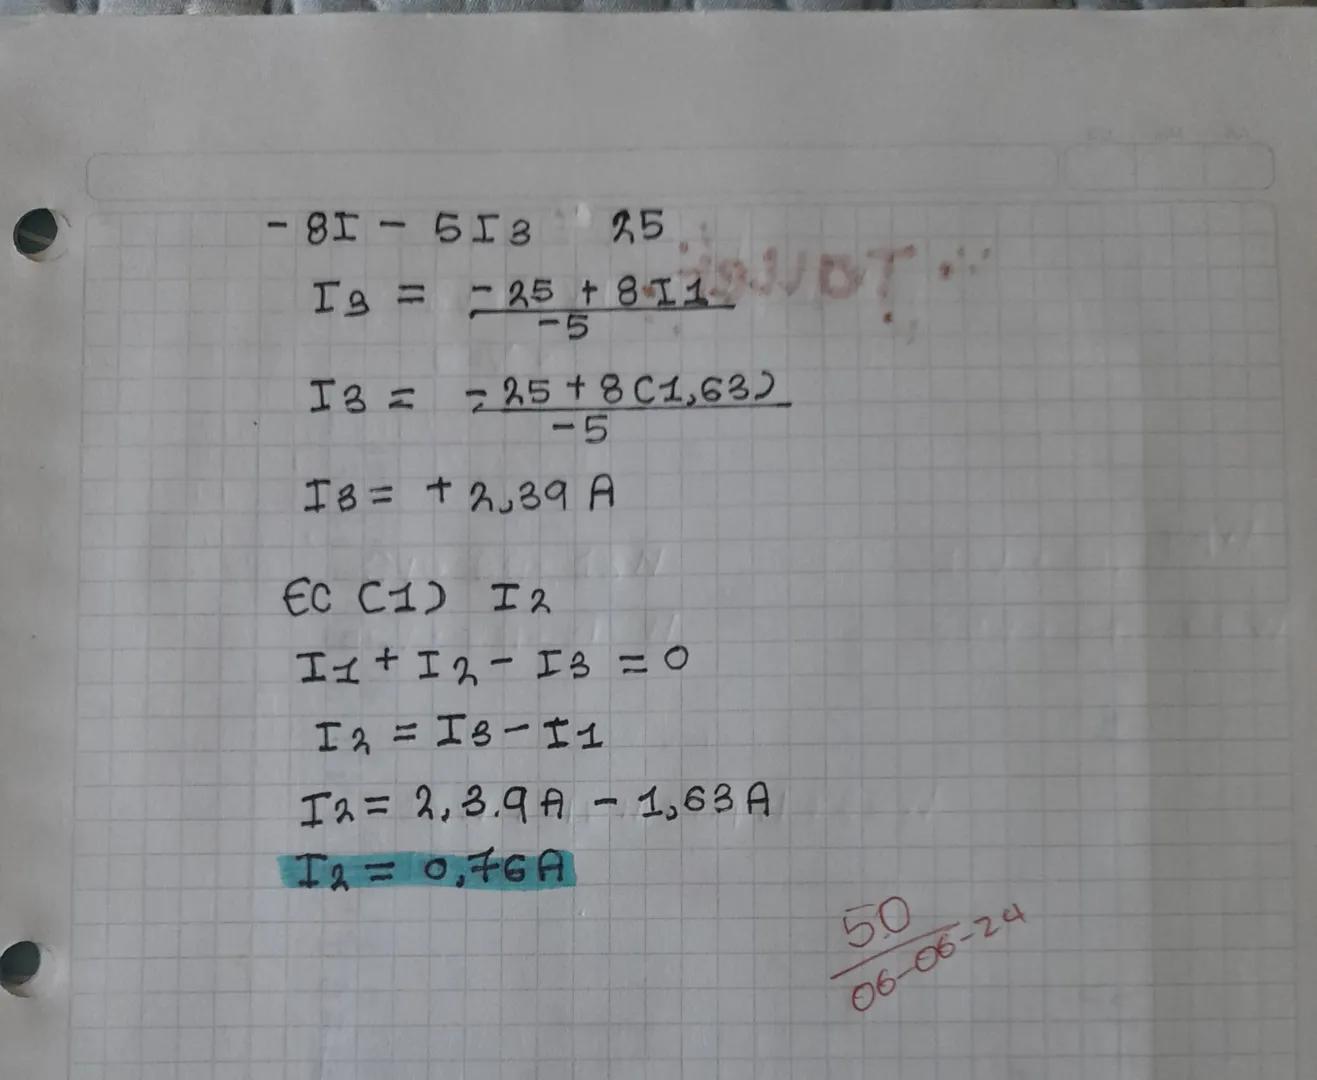 - 8I - 5I3 25
I3 = - 25 + 8 I1
-5
I3 = - 25 + 8 (1,63)
-5
I3 = + 2,39 A
EC (1) I2
I1 + I2 - I3 = 0
I2 = I3 - I1
I2 = 2,3.9 A - 1,63 A
I2 = 0,76 A
50
06-06-24